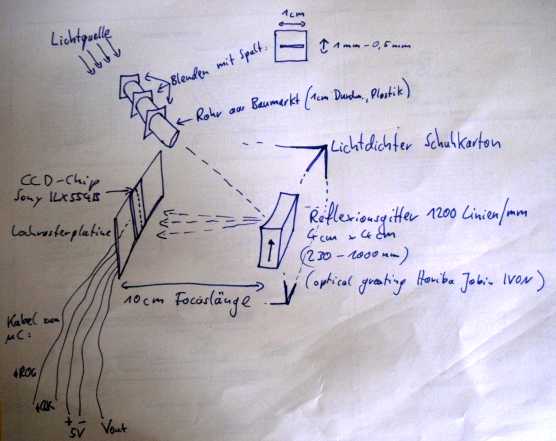 1cm
Lichtquelle
Blenden mit Spalt:
1mm-0,5mm
Rohr aus Baumarkt (1cm Durchm., Plastik)
Lichtdichter Schuhkarton
CCD-Chip
Sony ILX554B
Lochrasterplatine
Reflexionsgitter 1200 Linien/mm
4cm x 4cm
(230-1000nm)
(optical greating Horiba Jobin IVON)
10cm Focuslänge
Kabel zum
µC:
ROG
CLK
+ -
5V
Vout